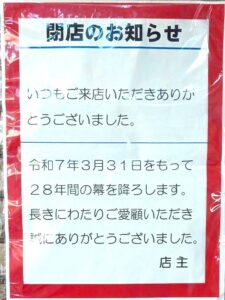 閉店のお知らせ
いつもご来店いただきありか
とうございました。
令和7年3月31日をもって
28年間の幕を降ろします。
長きにわたりご愛顧いただき
誠にありがとうございました。
店主